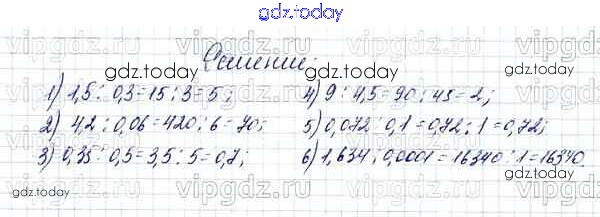 gdz.today
Решение:
1) 1,5 : 0,3 = 15 : 3 = 5;
2) 4,2 : 0,06 = 420 : 6 = 70;
3) 0,35 : 0,5 = 3,5 : 5 = 0,7;
4) 9 : 4,5 = 90 : 45 = 2;
5) 0,072 : 0,1 = 0,72 : 1 = 0,72;
6) 1,634 : 0,0001 = 16340 : 1 = 16340.
gdz.today
gdz.today
gdz.today
gdz.today
vipgdz.ru
vipgdz.ru
vipgdz.ru
vipgdz.ru